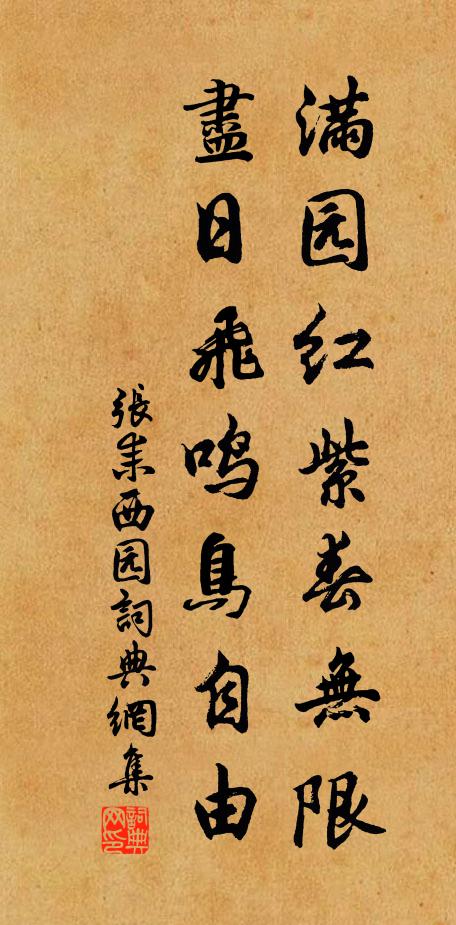 满园红紫春無限
盡日飛鸣鳥自由
張耒西园詞典網集
詞典网印